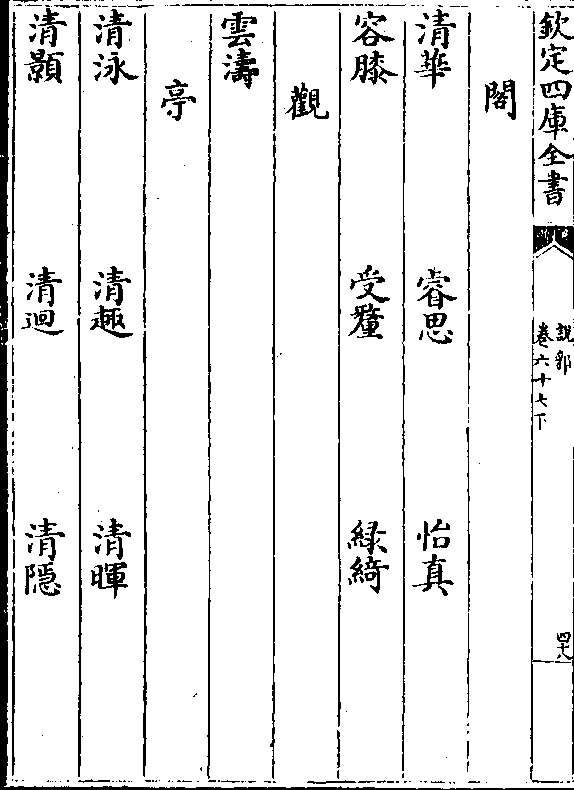 欽定四庫全書
說郛
卷六十七下
四十八
閣
清華 睿思 怡真
容膝 受釐 緑綺
觀
雲濤
亭
清泳 清趣 清暉
清顥 清迴 清隠